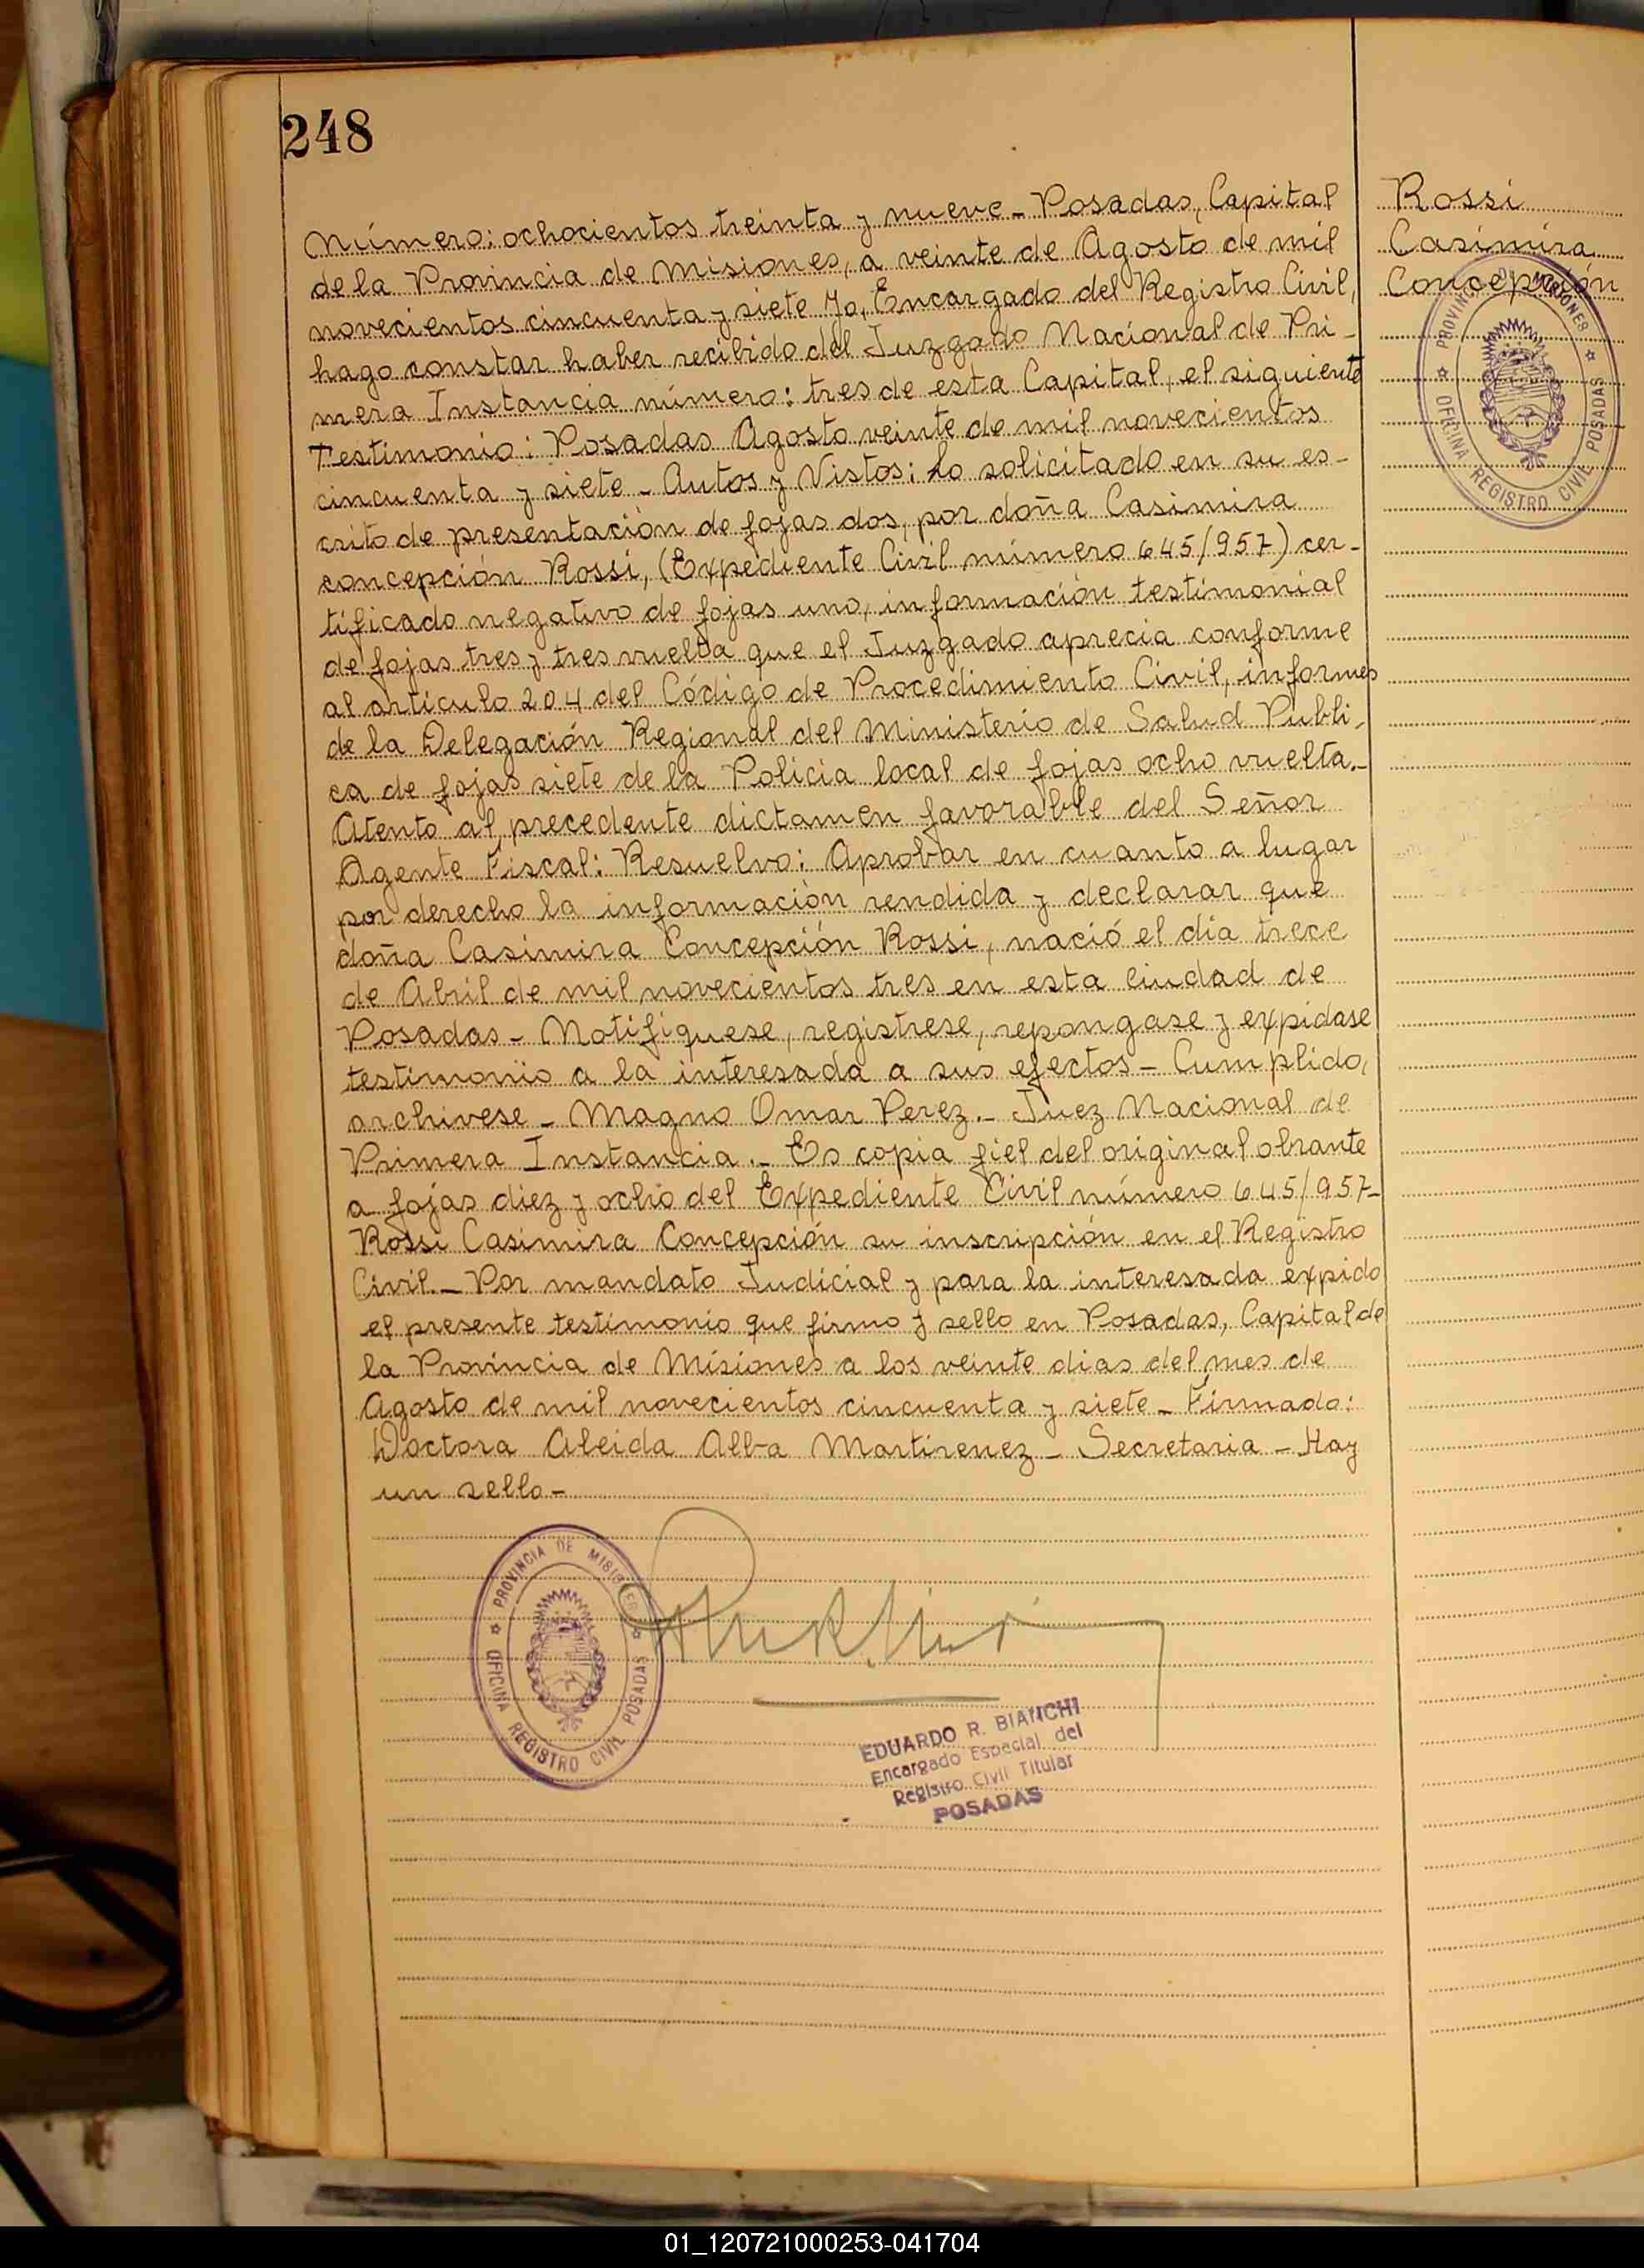 248
Número: ochocientos treinta y nueve - Posadas, Capital
de la Provincia de Misiones, a veinte de Agosto de mil
novecientos cincuenta y siete Yo, Encargado del Registro Civil,
hago constar haber recibido del Juzgado Nacional de Pri-
mera Instancia número: tres de esta Capital, el siguiente
Testimonio: Posadas Agosto veinte de mil novecientos
cincuenta y siete - Autos y Vistos: Lo solicitado en su es-
crito de presentación de fojas dos, por doña Casimira
concepción Rossi, (Expediente Civil número 645/957) cer-
tificado negativo de fojas uno, información testimonial
de fojas tres y tres vuelta que el Juzgado aprecia conforme
al artículo 204 del Código de Procedimiento Civil, informes
de la Delegación Regional del Ministerio de Salud Públi-
ca de fojas siete de la Policia local de fojas ocho vuelta.-
Atento al precedente dictamen favorable del Señor
Agente Fiscal: Resuelvo: Aprobar en cuanto a lugar
por derecho la información rendida y declarar que
doña Casimira Concepción Rossi, nació el día trece
de Abril de mil novecientos tres en esta ciudad de
Posadas - Notifiquese, registrese, repongase y expidase
testimonio a la interesada a sus efectos - Cumplido,
archivese - Magno Omar Perez.- Juez Nacional de
Primera Instancia.- Es copia fiel del original obrante
a fojas diez y ocho del Expediente Civil número 645/957-
Rossi Casimira Concepción su inscripción en el Registro
Civil.- Por mandato Judicial y para la interesada expido
el presente testimonio que firmo y sello en Posadas, Capital de
la Provincia de Misiones a los veinte dias del mes de
Agosto de mil novecientos cincuenta y siete - Firmado:
Doctora Aleida Alba Martirenez - Secretaria - Hay
un sello -
Rossi
Casimira
Concepción
PROVINCIA DE MISIONES
OFICINA REGISTRO CIVIL POSADAS
PROVINCIA DE MISIONES
OFICINA REGISTRO CIVIL POSADAS
EDUARDO R. BIANCHI
Encargado Especial del
Registro Civil Titular
POSADAS
01_120721000253-041704